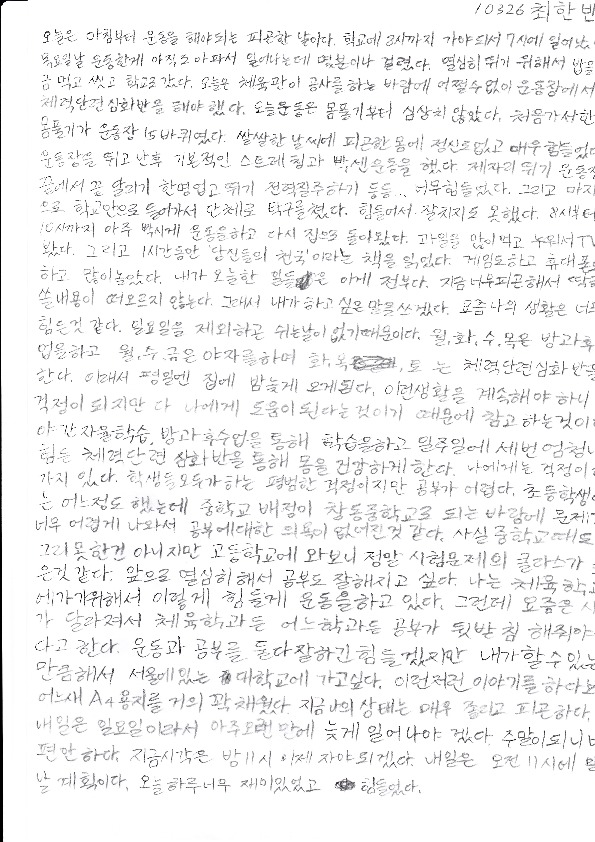 10326 최한빈
오늘은 아침부터 운동을 해야되는 피곤한 날이다. 학교에 8시까지 가야되서 7시에 일어났
목요일날 운동한게 아직도 아파서 일어나는데 몇분이나 걸렸다. 열심히 뛰기 위해서 밥을
금 먹고 씻고 학교로 갔다. 오늘은 체육관이 공사를 하는 바람에 어쩔수 없이 운동장에서
체력단련 심화반을 해야 했다. 오늘운동은 몸풀기부터 심상치 않았다. 처음가서한
몸풀기가 운동장 15바퀴였다. 쌀쌀한 날씨에 피곤한 몸에 정신도없고 매우 힘들었다
운동장을 뛰고 난후 기본적인 스트레칭과 빡센운동을 했다. 제자리 뛰기 운동장
끝에서 끝 달리기 한명업고 뛰기 전력질주하기 등등.. 너무힘들었다. 그리고 마지
으로 학교안으로 들어가서 단체로 탁구를쳤다. 힘들어서 잘치지도 못했다. 8시부터
10시까지 아주 빡시게 운동을하고 다시 집으로 돌아왔다. 과일을 많이먹고 누워서 TV
봤다. 그리고 1시간동안 '당신들의 천국'이라는 책을 읽었다. 게임도하고 휴대폰
하고 많이놀았다. 내가 오늘한 일들은 이게 전부다. 지금너무피곤해서 딱히
쓸내용이 떠오르지 않는다. 그래서 내가 하고 싶은 말을쓰겠다. 요즘 나의 생활은 너무
힘든것 같다. 일요일을 제외하곤 쉬는날이 없기때문이다. 월,화,수,목은 방과후
업을하고 월,수,금은 야자를하며 화,목,토 는 체력단련심화반을
한다. 이래서 평일엔 집에 밤늦게 오게된다. 이런생활을 계속해야 하니
걱정이 되지만 다 나에게 도움이 된다는것이기 때문에 참고 하는것이다
야간자율학습, 방과후수업을 통해 학습을하고 일주일에 세번 엄청나
힘든 체력단련 심화반을 통해 몸을 건강하게 한다. 나에게는 걱정이
가지 있다. 학생들모두가하는 평범한 걱정이지만 공부가 어렵다. 초등학생때
는 어느정도 했는데 중학교 배정이 창동중학교로 되는 바람에 문제가
너무 어렵게 나와서 공부에대한 의욕이 없어진것 같다. 사실 중학교때도
그리못한건 아니지만 고등학교에 와보니 정말 시험문제의 클라스가
은것 같다. 앞으로 열심히해서 공부도 잘해지고 싶다. 나는 체육학교
에가기위해서 이렇게 힘들게 운동을하고 있다. 그런데 요즘은 시
가 달라져서 체육학과든 어느학과든 공부가 뒷받침 해줘야
다고 한다. 운동과 공부를 둘다잘하긴 힘들겠지만 내가할수있는
만큼해서 서울에있는 대학교에 가고싶다. 이런저런 이야기를 하다보
어느새 A4용지를 거의 꽉채웠다. 지금 나의 상태는 매우 졸리고 피곤하다.
내일은 일요일이라서 아주오랜만에 늦게 일어나야 겠다. 주말이되니
편안하다. 지금시각은 밤11시 이제 자야되겠다. 내일은 오전 11시에 일
날 계획이다. 오늘하루너무 재미있었고 힘들었다.